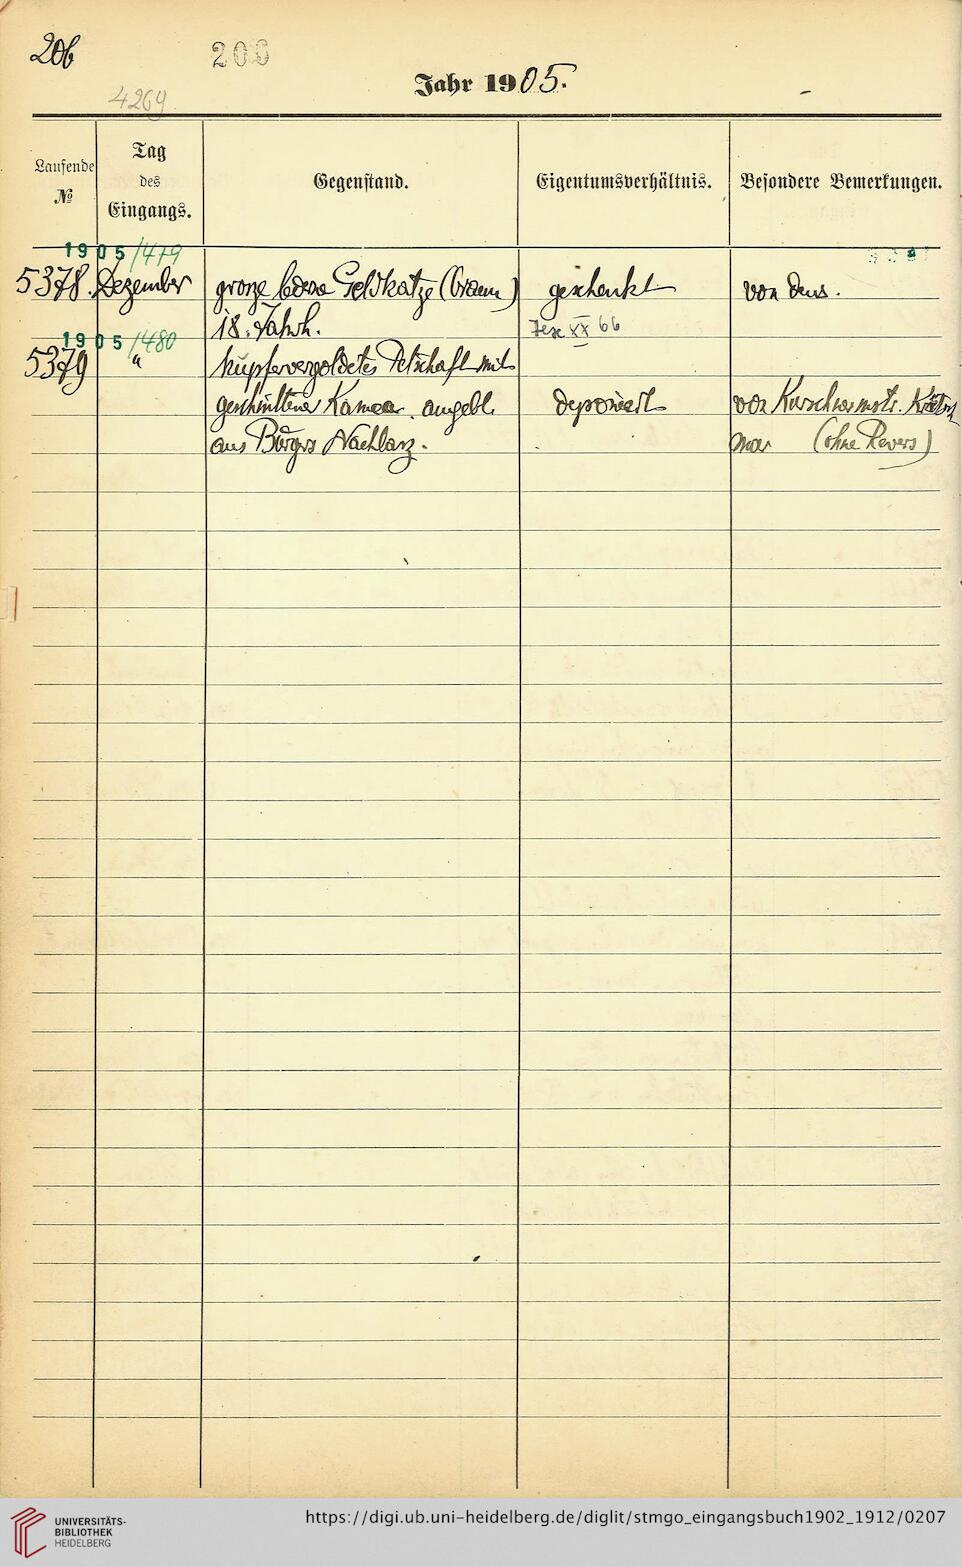 206 206
Jahr 1905.
4269
Laufende Nº
Tag des Eingangs.
Gegenstand.
Eigentumsverhältnis.
Besondere Bemerkungen.
1905/479
5378. Dezember große Geldkatze (braun) geschenkt von dems.
18. Jahrh. XX 66
1905/480
5379 " kupfervergoldetes Petschaft mit
geschnittener Kamee, angebl. deponiert von Kürschnermstr.
aus Nachlasz. (ohne Revers)
UNIVERSITÄTS-
BIBLIOTHEK
HEIDELBERG
https://digi.ub.uni-heidelberg.de/diglit/stmgo_eingangsbuch1902_1912/0207